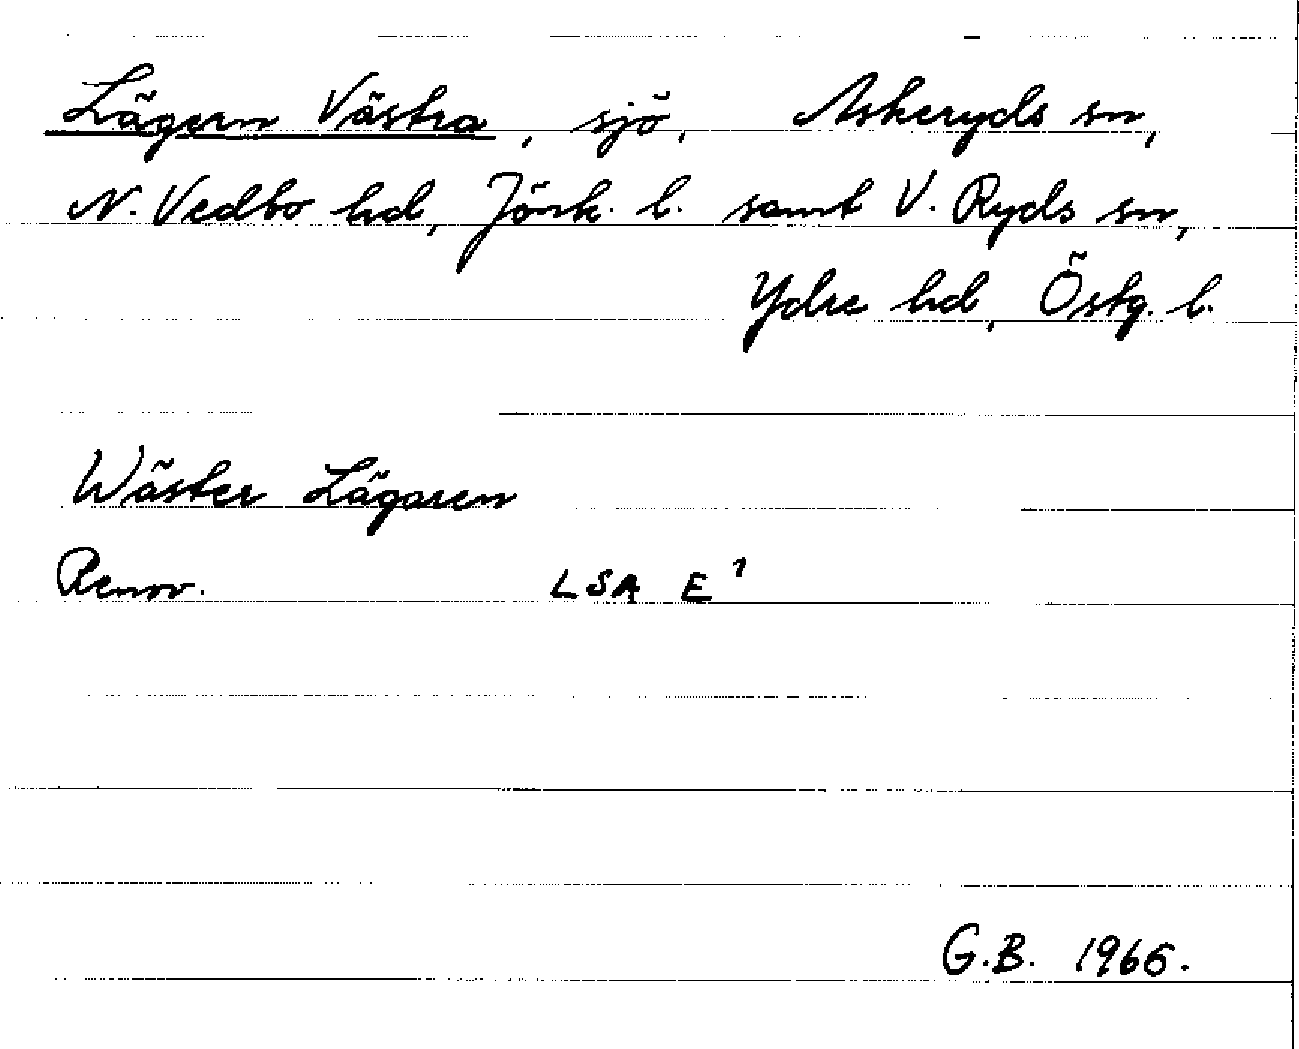 Lägern Västra, sjö, Askeryds sn,
N. Vedbo hd, Jönk. l. samt V. Ryds sn,
Ydre hd, Östg. l.
Wäster Lägaren
Renov. LSA E¹
G.B. 1966.